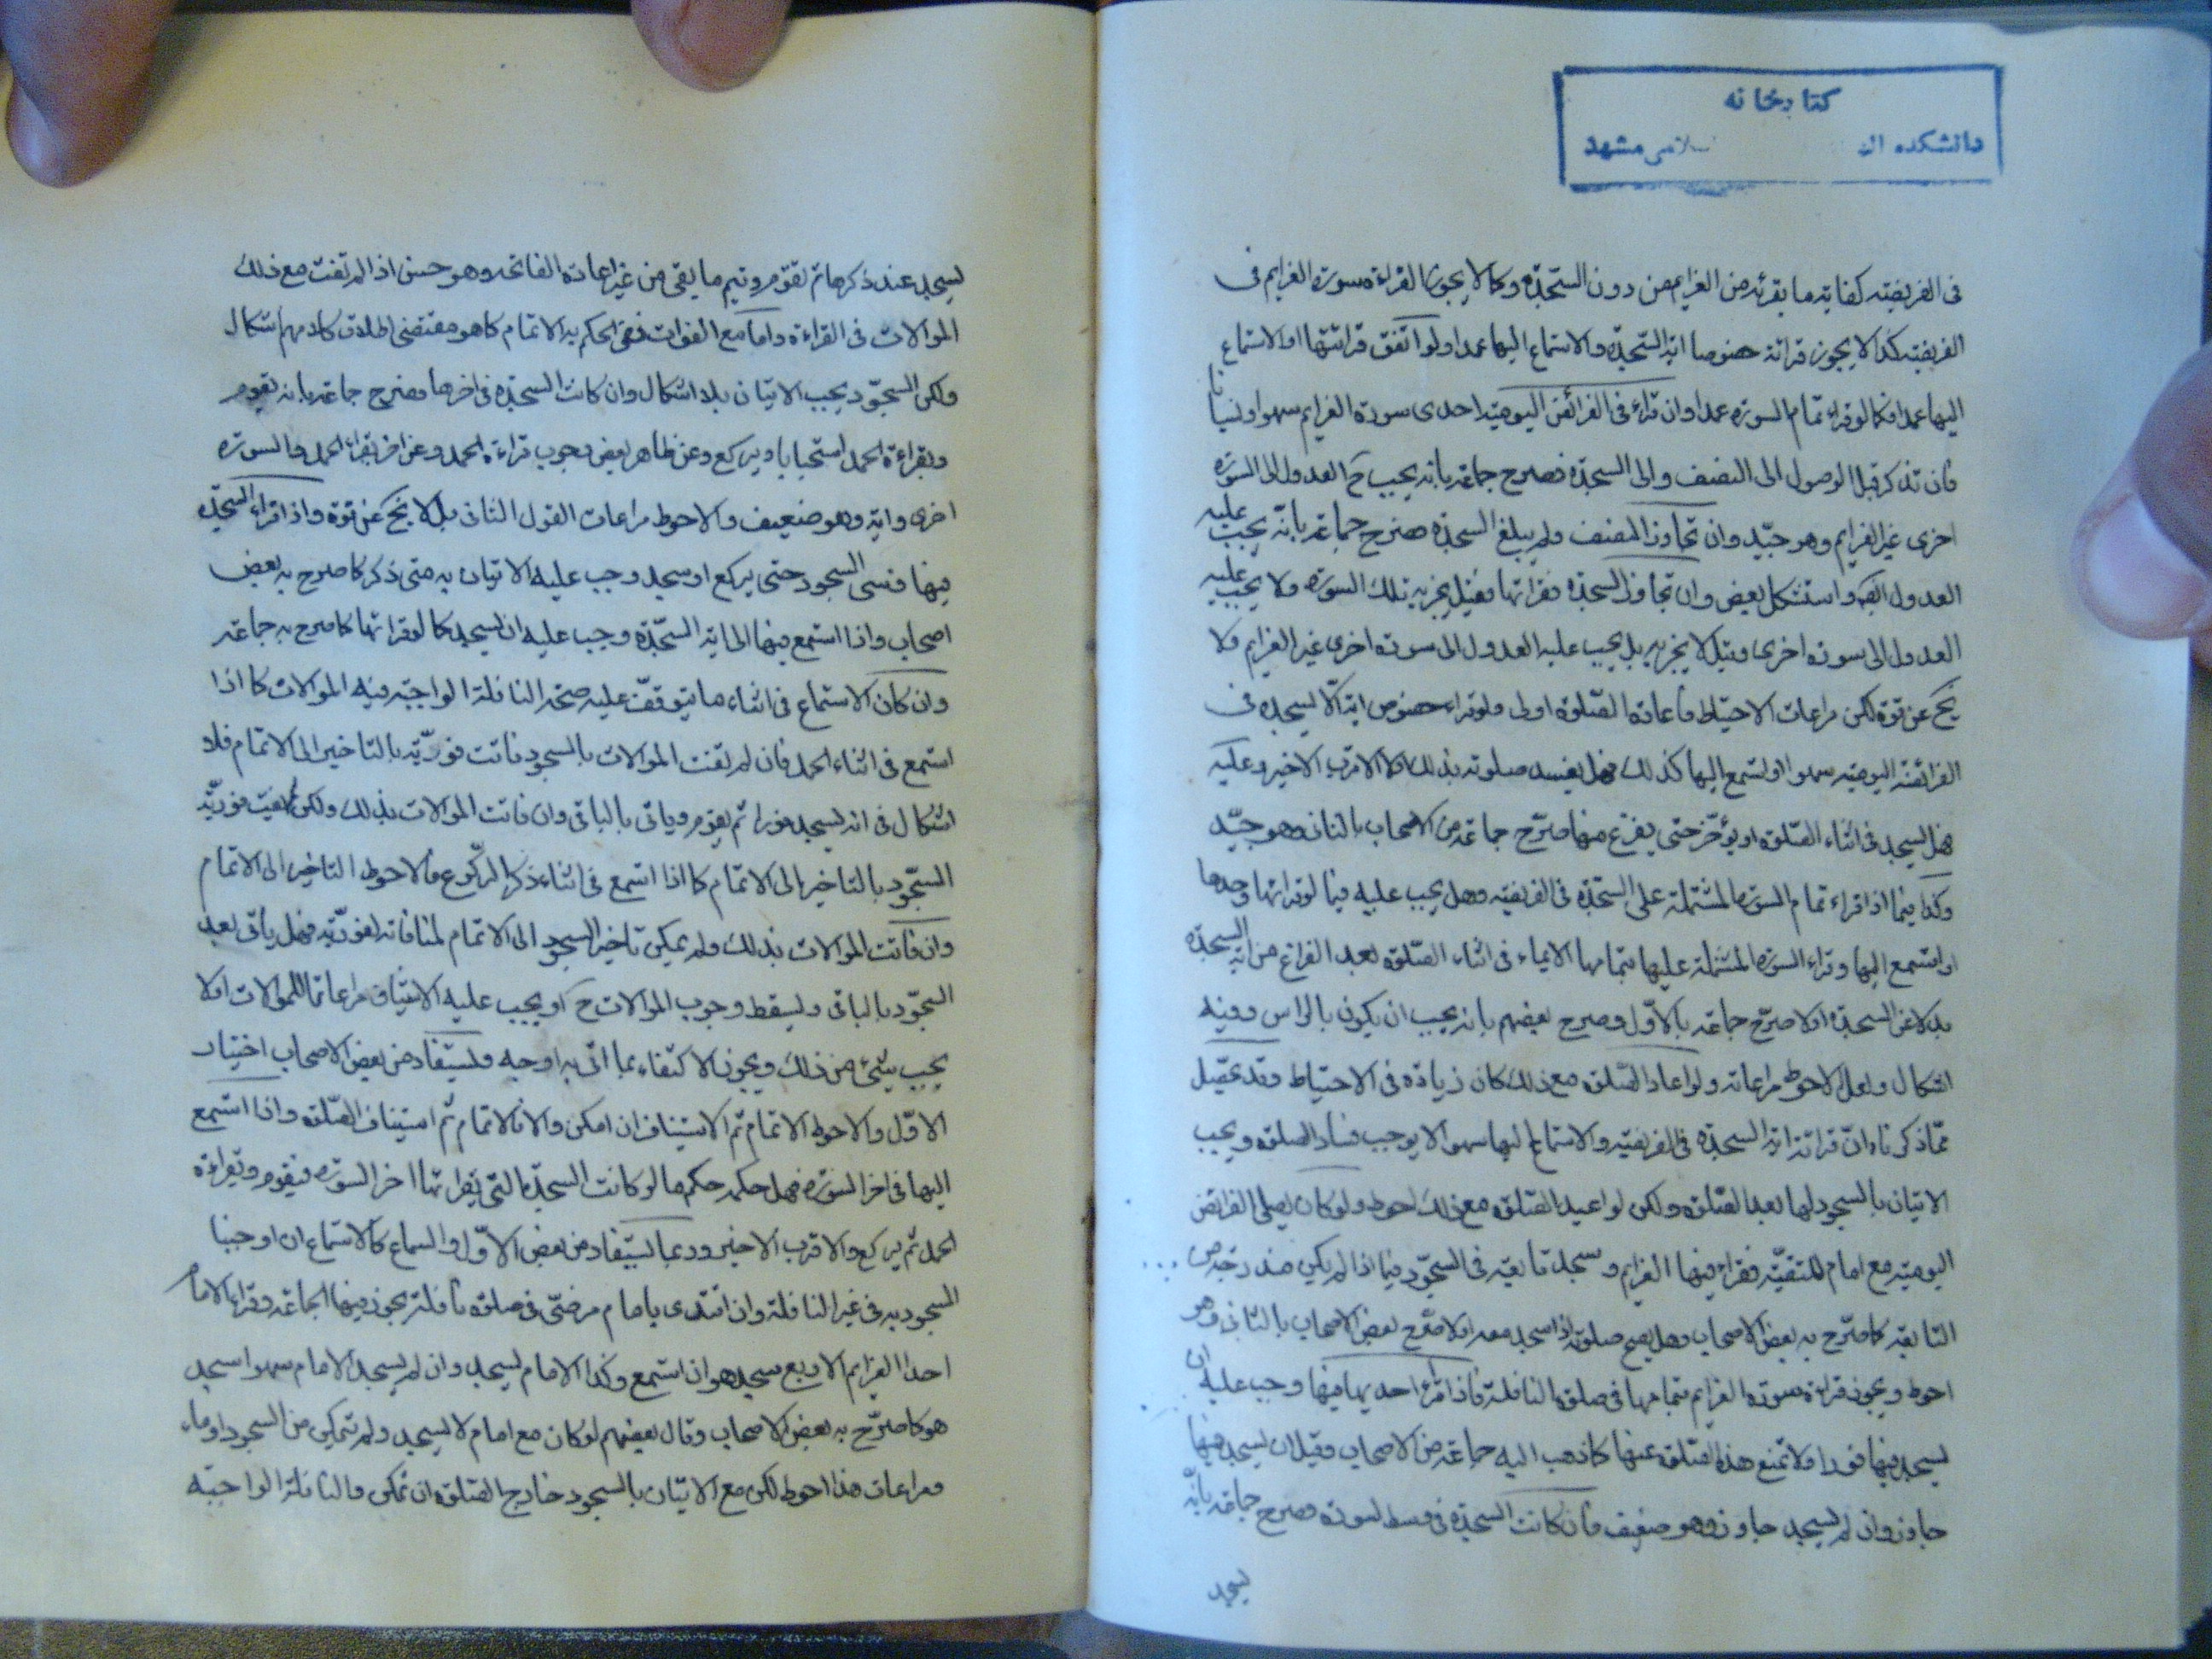 كتابخانه
دانشكده اله سلامى مشهد
فى الفريضته كفاية ما يقرئه من الغرايم من دون السّجدة وكما لا يجوز القراءة سورة الغرايم فى
الفريضته كذا لا يجوز قرائة خصوصا اية السّجدة والاستماع اليها عمدا ولو اتّفق قرائتها او الاستماع
اليها عمدا فكما لو قراء تمام السورة عمدا وان قراء فى الفرائض اليوميّة احدى سورة الغرايم سهوا ونسيانا
فان تذكر قبل الوصول الى النصف والى السجدة فصرح جماعة بانه يجيب ح العدول الى السورة
اخرى غير الغرايم وهو جيّد وان تجاوز النصف ولم يبلغ السجدة صرح جماعة بانّه يجب عليه
العدول ايضا واستشكل بعض وان تجاوز السجدة فقراتها فقيل يجزيه تلك السورة ولا يجب عليه
العدول الى سورة اخرى وقيل لا يجزيه بل يجب عليه العدول الى سورة اخرى غير الغرايم ولا
يخ عن قوة لكن مراعات الاحتياط فاعادة الصّلوة اولى ولو قراء خصوص اية لا يسجده فى
الفرائضة اليوميّة سهوا او لستمع اليها كذلك فهل يفسد صلوته بذلك ام لا الاقرب الاخير وعليه
فهل يسجد فى اثناء الصّلوة او يؤخّر حتى يفرغ منها صرّح جماعة من الاصحاب بالثانى وهو جيّد
وكذا فيما اذا قراء تمام السورة المشتملة على السّجدة فى الفريضته وهل يجب عليه فيما لو قراتها وحدها
او استمع اليها وقراء السورة المشتملة عليها بتمامها الايماء فى اثناء الصّلوة بعد الفراغ من اية السجدة
بدلا عن السجدة ام لا صرّح جماعة بالاوّل وصرح بعضهم بانه يجب ان يكون بالراس وفيه
اشكال ولعل الاحوط مراعاته ولو اعاد الصّلوة مع ذلك كان زيادة فى الاحتياط وقد تحصّل
ممّا ذكرناه انّ قرائة اية السجدة فى الفريضته والاستماع اليها سهوا لا يوجب فساد الصلوة ويجب
الاتيان بالسجود لها بعد الصّلوة ولكن لو اعيد الصّلوة مع ذلك احوط ولو كان يصلى الفرائض
اليوميّة مع امام للتقيّة فقراء فيها الغرايم وسجد تابعه فى السجّود فيما اذا لم يكن مندوحة من
التابعة كما صرّح به بعض الاصحاب وهل يصح صلوته اذا سجد معه ام لا صرّح بعض الاصحاب بالثانى وهو
احوط ويجوز قراءة سورة الغرايم بتمامها فى صلوة النافلة فاذا قراء احديها فيها وجب عليه ان
يسجد فيها فورا ولا تمنع هذه الصّلوة عنها كما ذهب اليه جماعة من الاصحاب وقيل ان يسجد فيها
جاوز وان لم يسجد جاوز وهو ضعيف فان كانت السجدة فى وسط السورة صرح جماعة بانّه
يسجد
يسجد عند ذكرها ثم تقوم ويتم ما يقى من غير اعادة الفاتحة وهو حسن اذا لم تفت مع ذلك
الموالات فى القراءة واما مع الفوات ففى الحكم بالاتمام كما هو مقتضى اطلاق كلامهم اشكال
ولكن السجّود يجب الاتيان بلا اشكال وان كانت السجدة فى اخرها فصرح جماعة بانه يقوم
ويقراءة الحمد استحبابا ويركع وعن ظاهر بعض وجوب قراءة الحمد وعن اخر يقراء الحمد والسورة
اخرى واية وهو ضعيف والاحوط مراعات القول الثانى بل لا يخ عن قوة واذا قراء السجدة
فيها فنسى السجود حتى يركع او سجد وجب عليه الاتيان به متى ذكر كما صرح به بعض
اصحاب واذا استمع فيها الى اية السّجدة وجب عليه ان يسجد كما لو قراتها كما صرح به جماعة
وان كان الاستماع فى اثناء ما يتوقف عليه صحة النافلة الواجبة فيه الموالات كما اذا
استمع فى اثناء الحمد فان لم تفت الموالات بالسجود فاتت فوريّة بالتاخير الى الاتمام فلا
اشكال فى انه يسجد فورا ثم يقوم وياتى بالباقى وان فاتت الموالات بذلك ولكن لم يفت فوريّة
السجّود بالتاخير الى الاتمام كما اذا استمع فى اثناء ذكر الركوع فالاحوط التاخير الى الاتمام
وان فاتت الموالات بذلك ولم يمكن تاخير السجود الى الاتمام لمنافاته لفوريّة فهل ياتى بعد
السجّود بالباقى ويسقط وجوب الموالات ح او يجب عليه الاستيناف مراعاتا للموالات او لا
يجب شئ من ذلك ويجوز الاكتفاء بما اتى به اوجه ويستفاد من بعض الاصحاب اختيار
الاوّل والاحوط الاتمام ثم الاستيناف ان امكن والا فالاتمام ثم استيناف الصّلوة واذا استمع
اليها فى اخر السورة فهل حكمه حكم ما لو كانت السجدة التى يقراتها اخر السورة فيقوم ويقراءة
الحمد ثم يركع والاقرب الاخير وربما يستفاد من بعض الاوّل والسماع كالاستماع ان اوجبنا
السجود به فى غير النافلة وان اقتدى بامام مرضىّ فى صلوة نافلة يجوز فيها الجماعة وقراء الامام
احد الغرايم الاربع سجد هو ان استمع وكذا الامام يسجد وان لم يسجد الامام سهوا سجد
هو كما صرّح به بعض الاصحاب وقال بعضهم لو كان مع امام لا يسجد ولم تتمكن من السجود اوماء
ومراعات هذا احوط لكن مع الاتيان بالسجود خارج الصّلوة ان تمكن والنافلة الواجبة